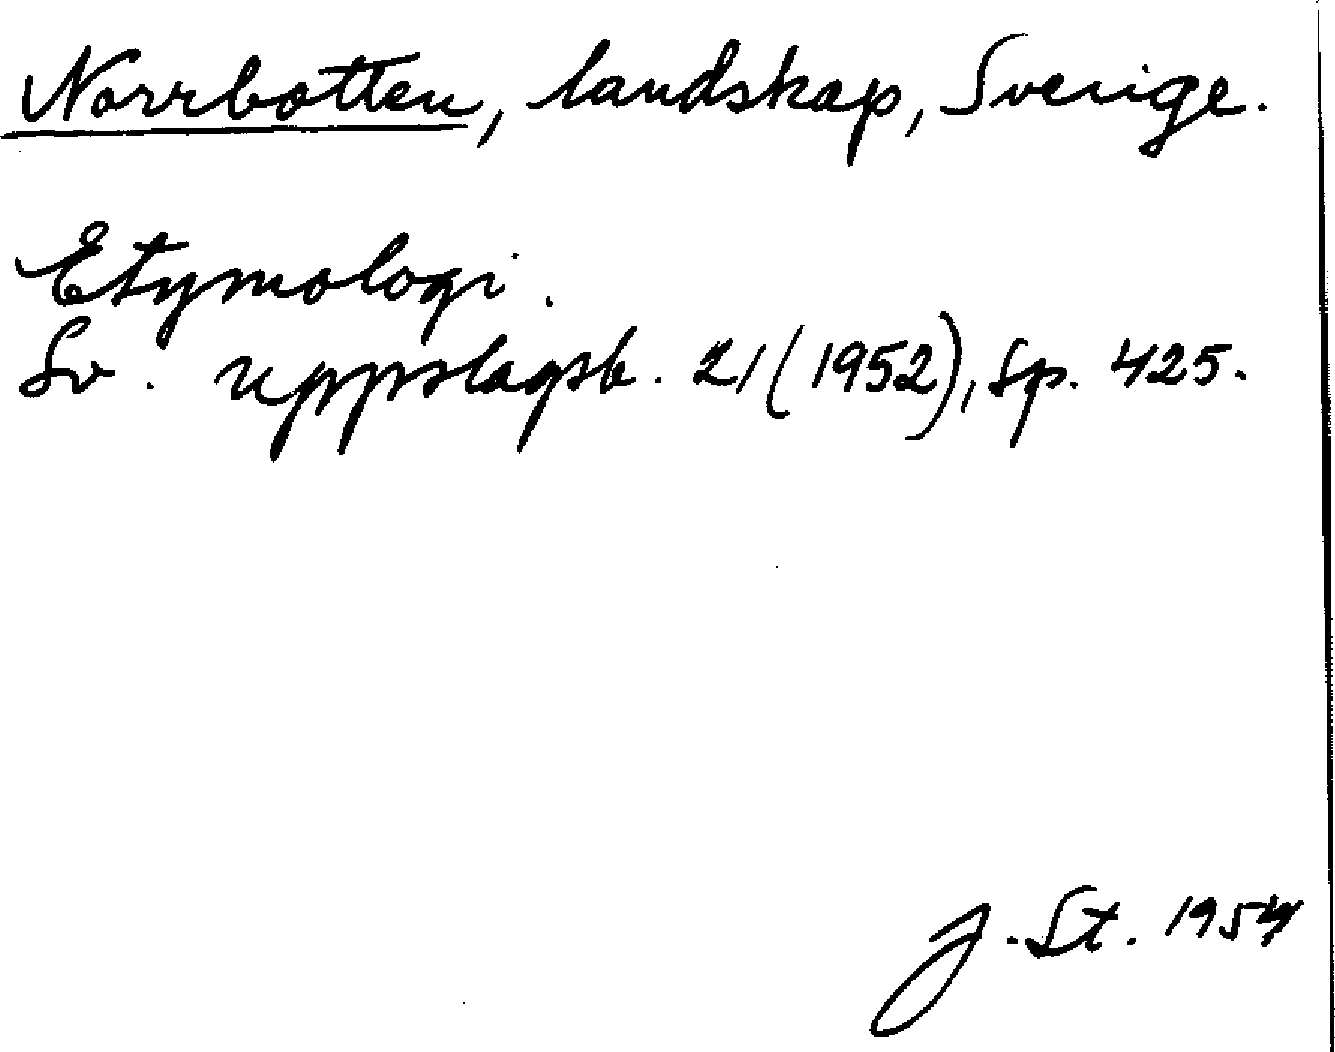 Norrbotten, landskap, Sverige.
Etymologi.
Sv. uppslagsb. 21 (1952), sp. 425.
J. St. 1954